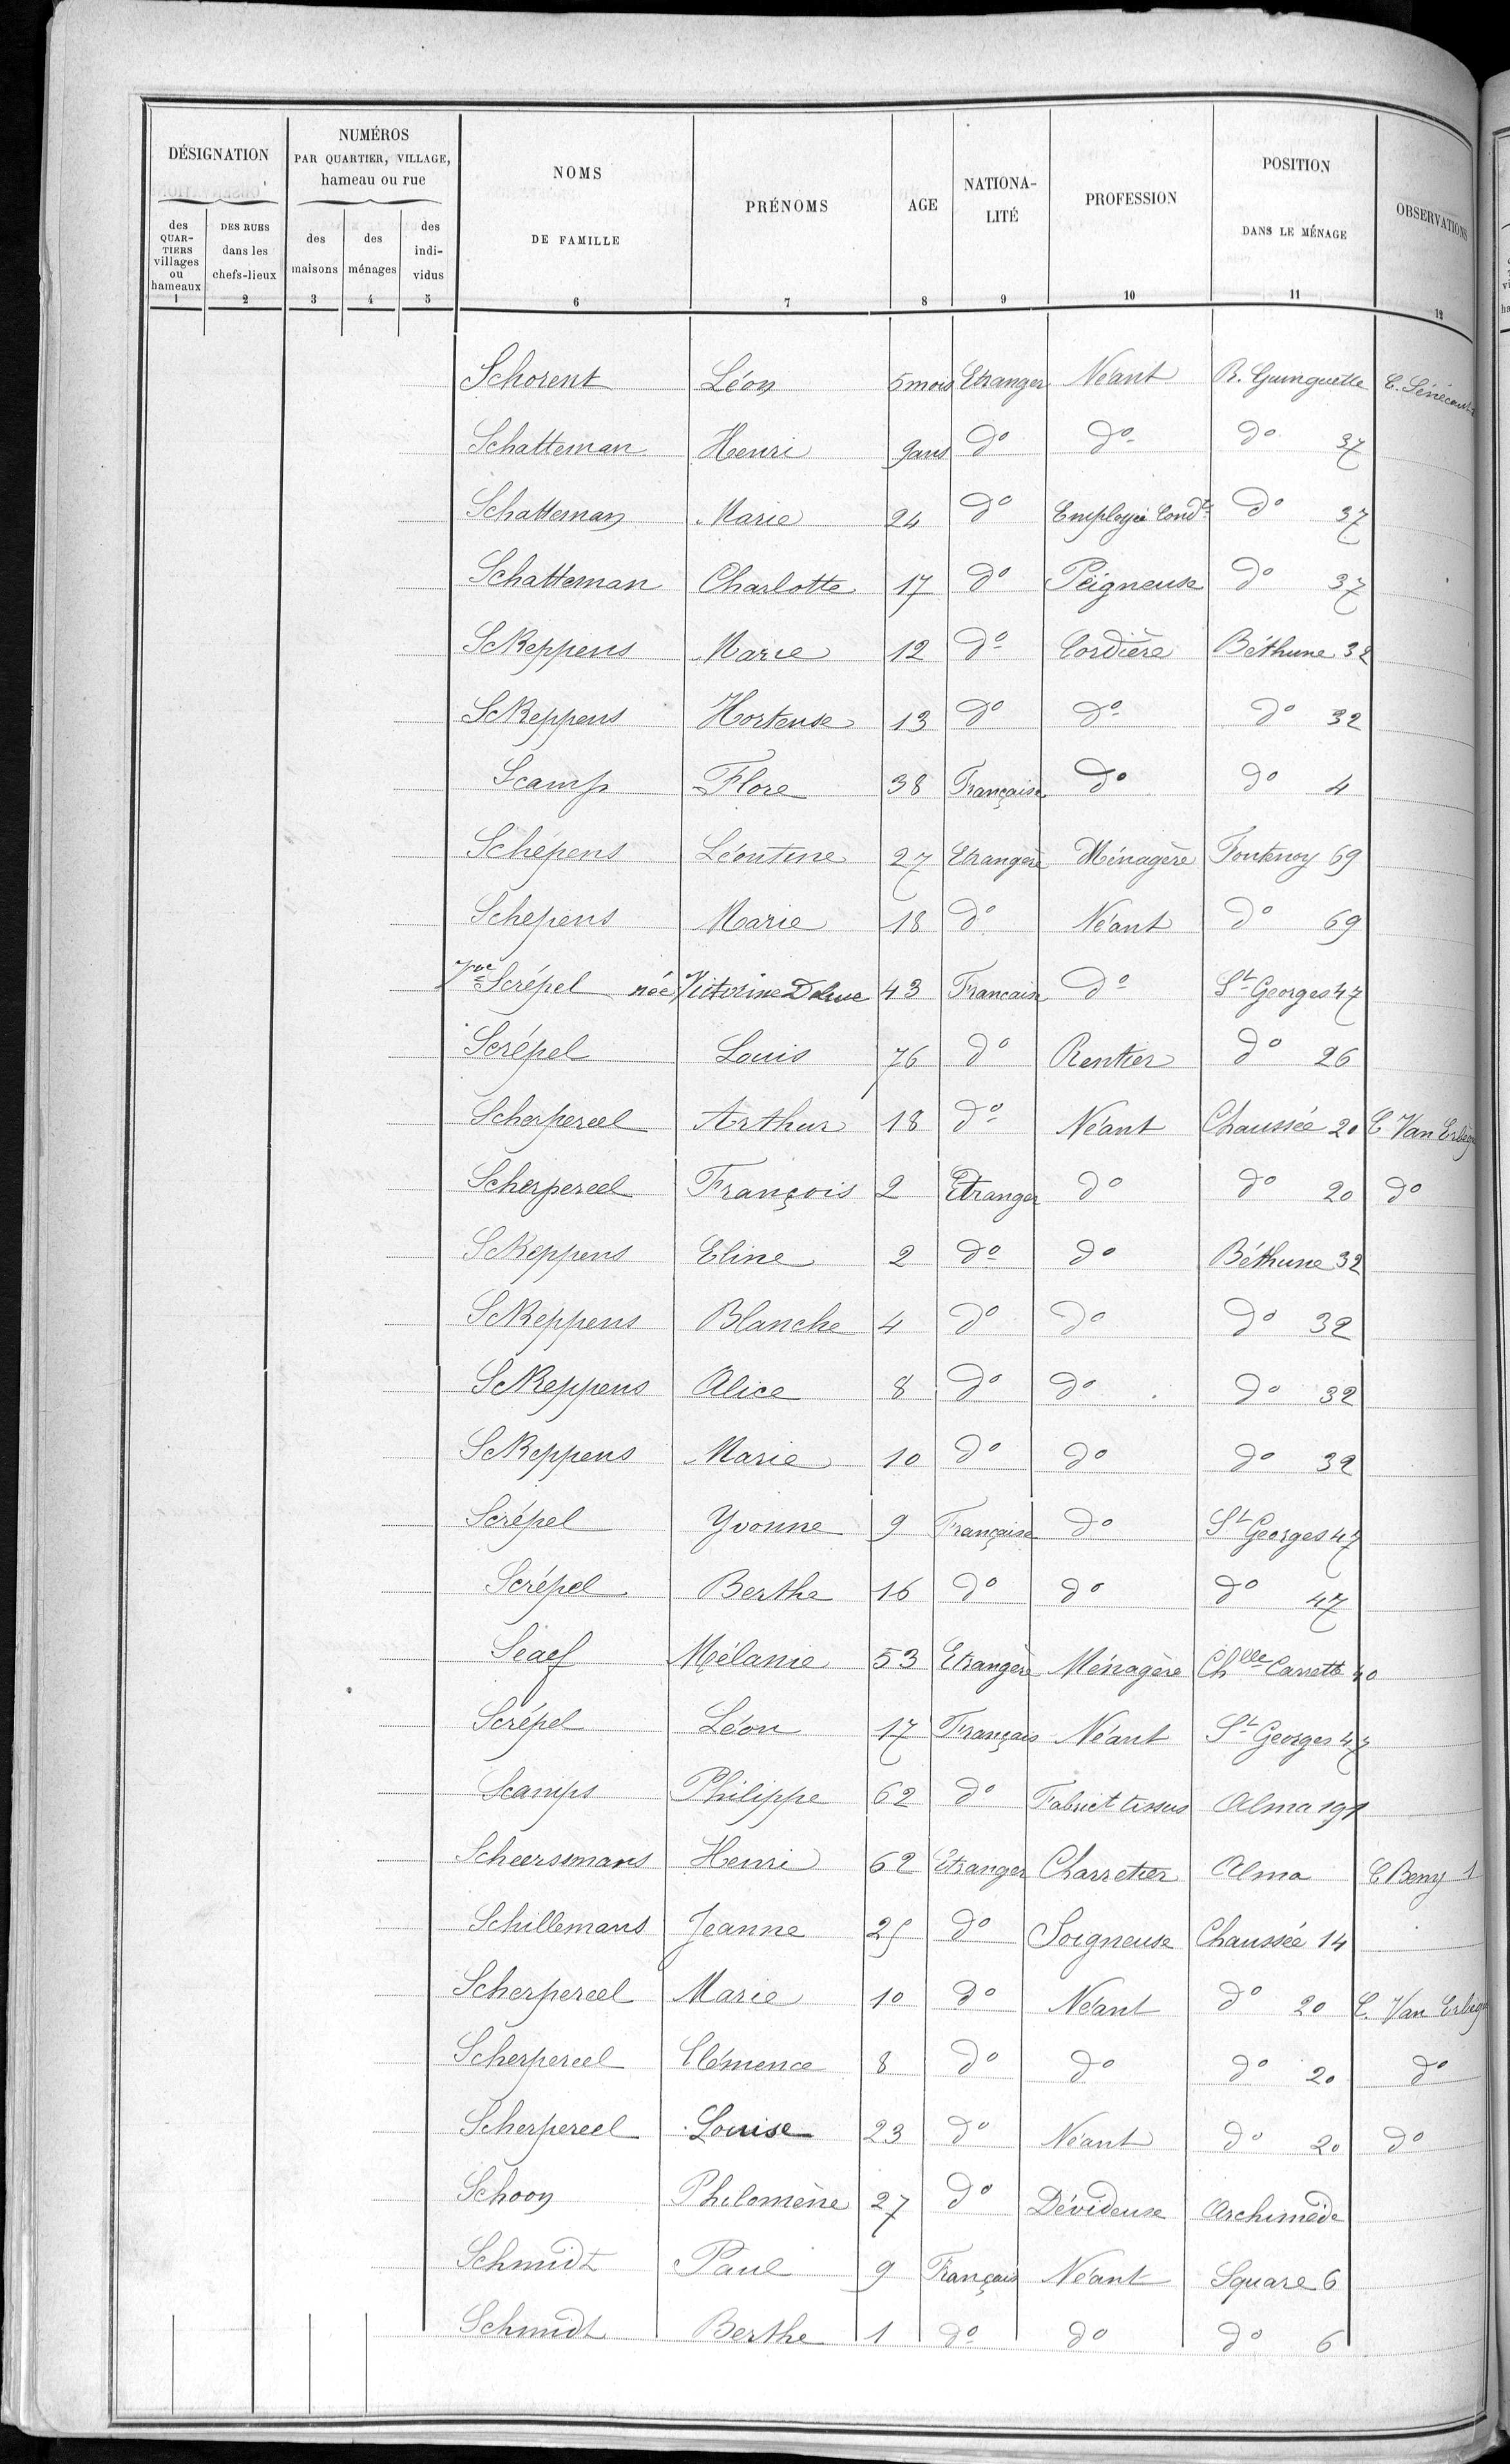 DÉSIGNATION
des QUARTIERS villages ou hameaux
1
DES RUES dans les chefs-lieux
2
NUMÉROS PAR QUARTIER, VILLAGE, hameau ou rue
des maisons
3
des ménages
4
des indi-vidus
5
NOMS DE FAMILLE
6
PRÉNOMS
7
AGE
8
NATIONA-LITÉ
9
PROFESSION
10
POSITION DANS LE MÉNAGE
11
OBSERVATIONS
12
Schorent Léon 5 mois Etranger Néant R. Guinguette
Schatteman Henri 9 ans do do do 37
Schatteman Marie 24 do Employée Condt do 37
Schatteman Charlotte 17 do Peigneuse do 37
Skeppens Marie 12 do Cordière Béthune 32
Skeppens Hortense 13 do do do 32
Scamp Flore 38 Française do do 4
Schépens Léontine 27 Etrangère Ménagère Fontenoy 69
Schepens Marie 18 do Néant do 69
Vve Scrépel née Victorine 43 Francaise do St Georges 47
Scrépel Louis 76 do Rentier do 26
Scherpereel Arthur 18 do Néant Chaussée 20 C Van
Scherpereel François 2 Etranger do do 20 do
Skeppens Eline 2 do do Béthune 32
Skeppens Blanche 4 do do do 32
Skeppens Alice 8 do do do 32
Skeppens Marie 10 do do do 32
Scrépel Yvonne 9 Française do St Georges 47
Scrépel Berthe 16 do do do 47
Mélanie 53 Etrangère Ménagère Chlle Carette 40
Scrépel Léon 17 Français Néant St Georges 47
Scamps Philippe 62 do Fabrict tissus Alma 191
Scheersmans Henri 62 Etranger Charretier Alma C Beny 1
Schillemans Jeanne 25 do Soigneuse Chaussée 14
Scherpereel Marie 10 do Néant do 20 C. Van
Scherpereel Clémence 8 do do do 20 do
Scherpereel Louise 23 do Néant do 20 do
Schoon Philomène 27 do Dévideuse Archimède
Schmidt Paul 9 Français Néant Square 6
Schmidt Berthe 1 do do do 6